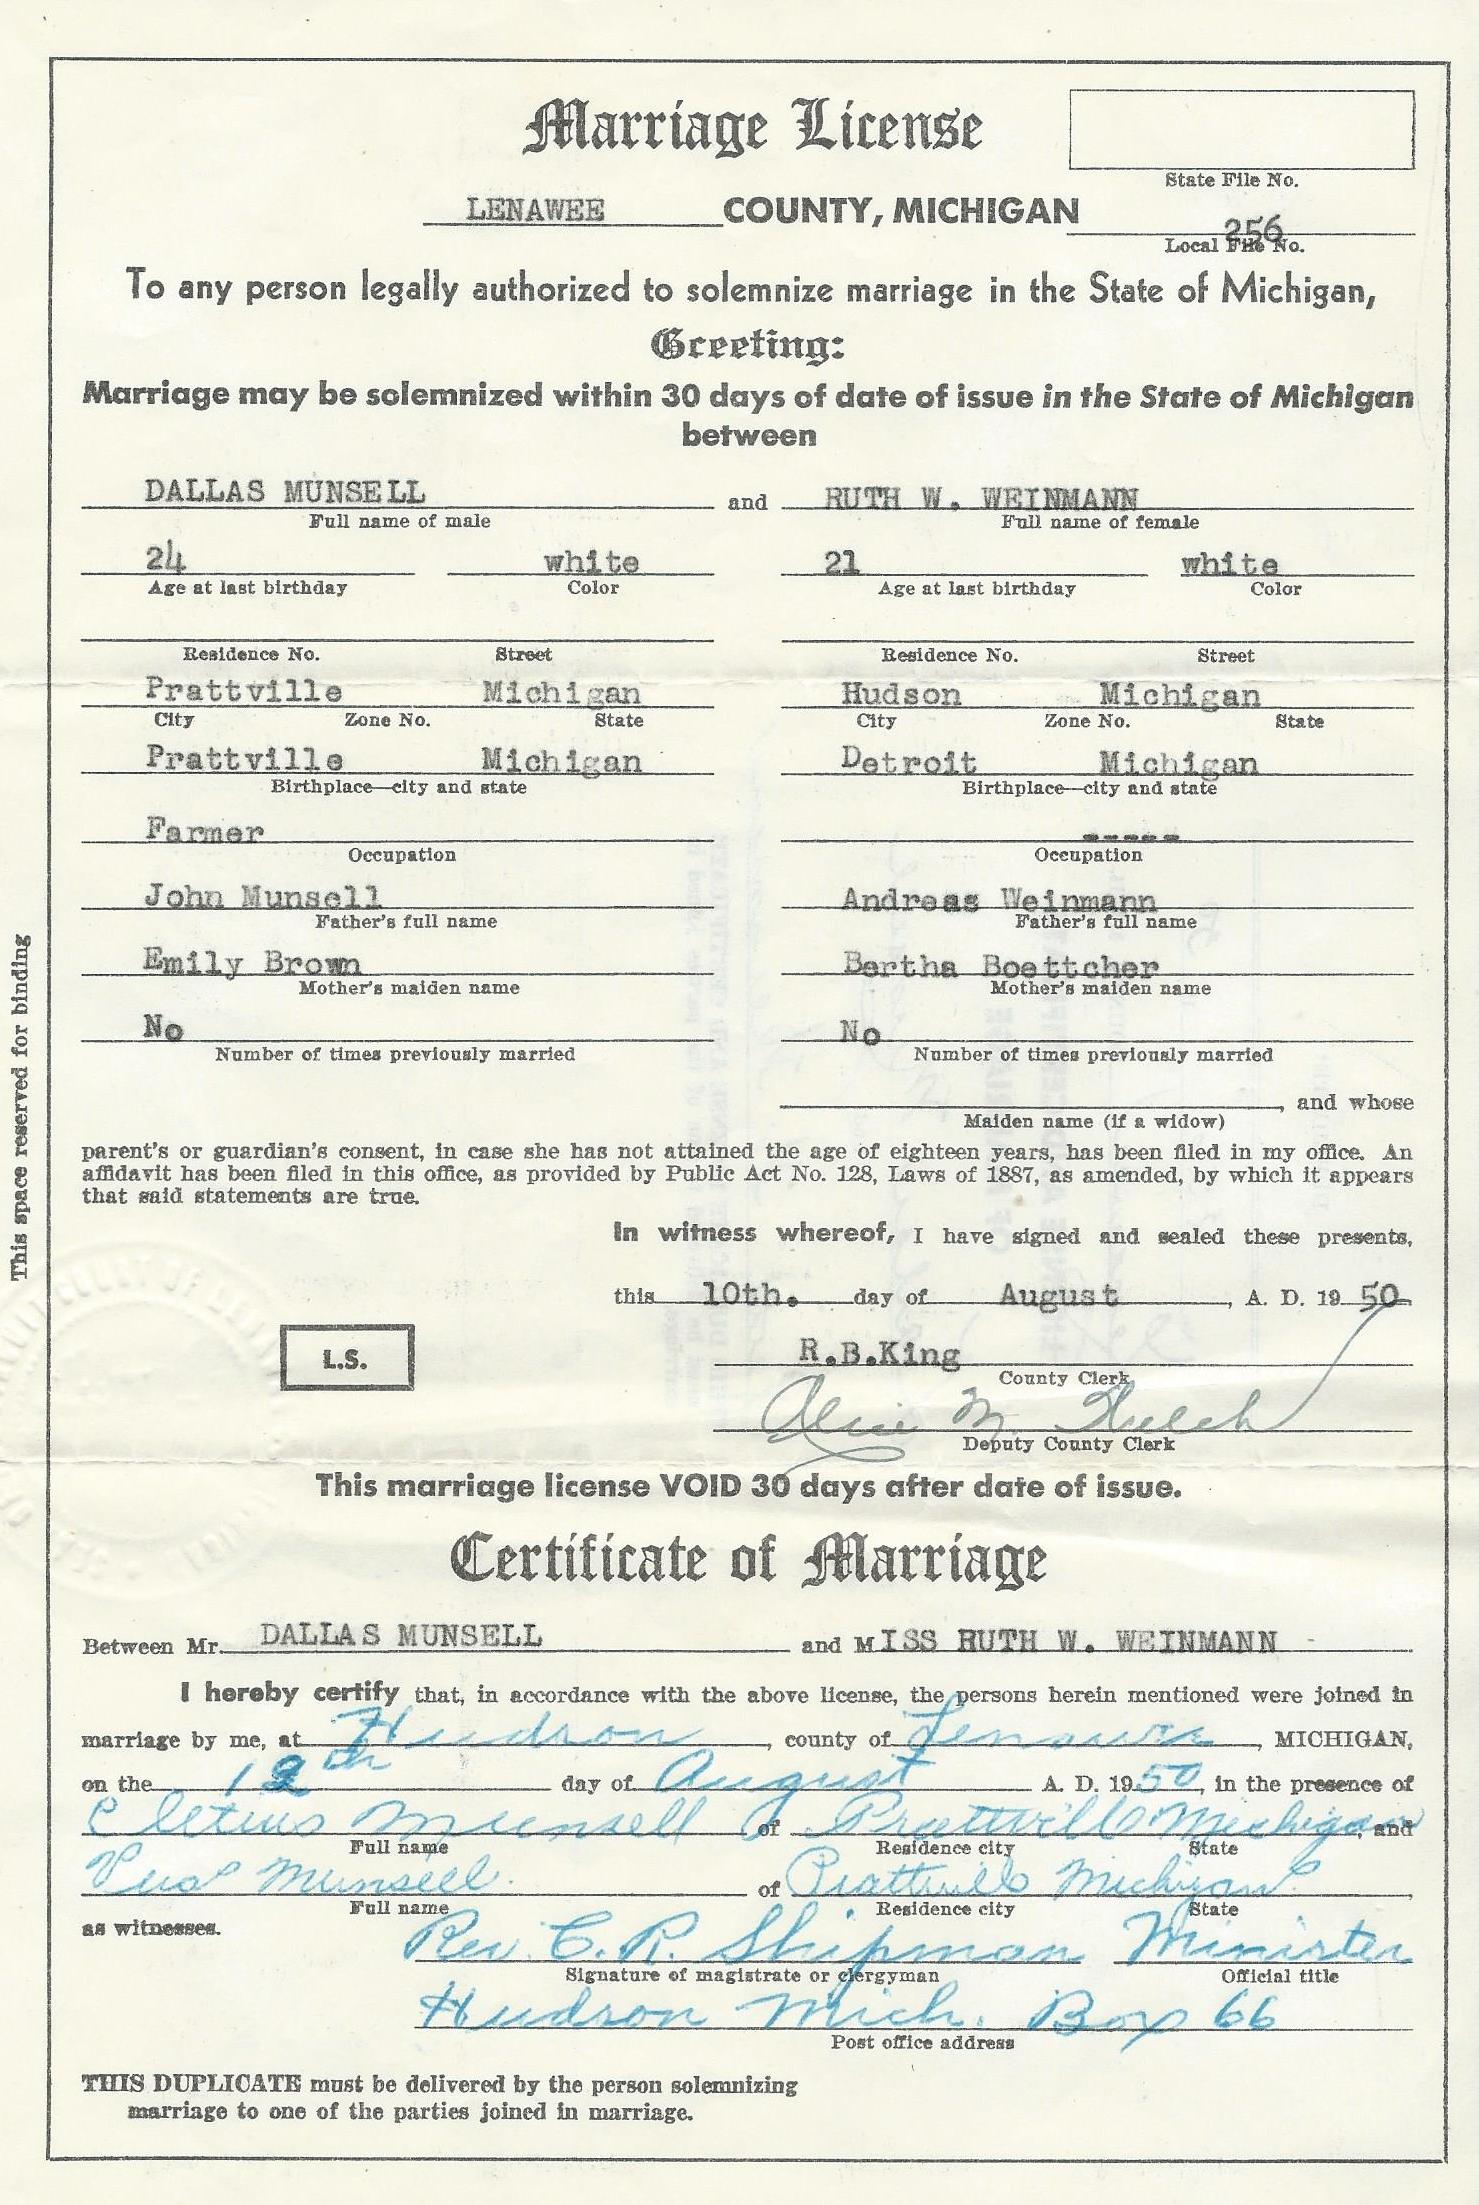 Marriage License
State File No.
LENAWEE COUNTY, MICHIGAN
256
Local File No.
To any person legally authorized to solemnize marriage in the State of Michigan,
Greeting:
Marriage may be solemnized within 30 days of date of issue in the State of Michigan
between
DALLAS MUNSELL and RUTH W. WEINMANN
Full name of male Full name of female
24 white 21 white
Age at last birthday Color Age at last birthday Color
Residence No. Street Residence No. Street
Prattville Michigan Hudson Michigan
City Zone No. State City Zone No. State
Prattville Michigan Detroit Michigan
Birthplace—city and state Birthplace—city and state
Farmer -----
Occupation Occupation
John Munsell Andreas Weinmann
Father's full name Father's full name
Emily Brown Bertha Boettcher
Mother's maiden name Mother's maiden name
No No
Number of times previously married Number of times previously married
, and whose
Maiden name (if a widow)
parent's or guardian's consent, in case she has not attained the age of eighteen years, has been filed in my office. An
affidavit has been filed in this office, as provided by Public Act No. 128, Laws of 1887, as amended, by which it appears
that said statements are true.
In witness whereof, I have signed and sealed these presents,
this 10th. day of August, A. D. 19 50
L.S.
R.B.King
County Clerk
M.
Deputy County Clerk
This marriage license VOID 30 days after date of issue.
Certificate of Marriage
Between Mr. DALLAS MUNSELL and MISS RUTH W. WEINMANN
I hereby certify that, in accordance with the above license, the persons herein mentioned were joined in
marriage by me, at Hudson, county of Lenawee, MICHIGAN,
on the 12th day of August A. D. 1950, in the presence of
Cletus Munsell of Prattville Michigan, and
Full name Residence city State
Munsell. of Prattville Michigan,
Full name Residence city State
as witnesses.
Rev. C. R. Shipman Minister
Signature of magistrate or clergyman Official title
Hudson Mich. Box 66
Post office address
THIS DUPLICATE must be delivered by the person solemnizing
marriage to one of the parties joined in marriage.
This space reserved for binding